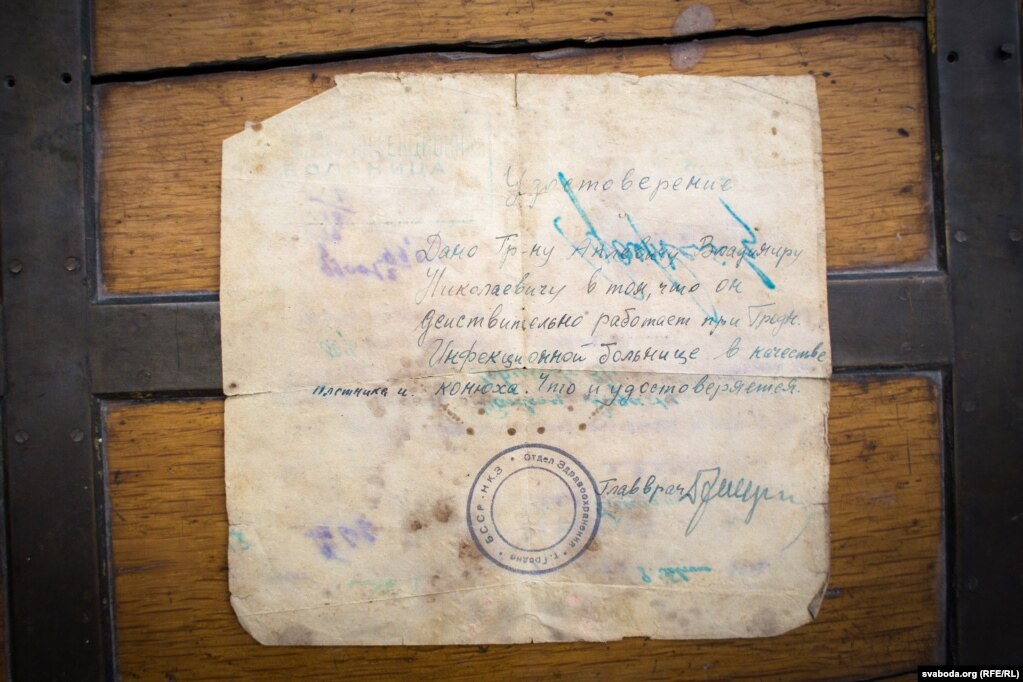 Удостоверение
Дано Гр-ну Владимиру
Николаевичу в том, что он
действительно работает при Гродн.
Инфекционной больнице в качестве
плотника и. конюха. Что и удостоверяется.
БССР-НКЗ • Отдел Здравоохранения • г. Гродно •
Главврач
svaboda.org (RFE/RL)